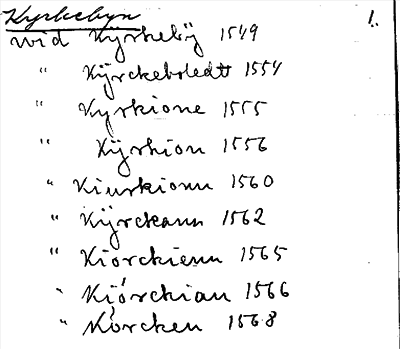 Kyrkebyn 1.
wid Kÿrkebÿ 1549
" Kÿrckeboledtt 1554
" Kyrkione 1555
" Kÿrkion 1556
" Kiurkionn 1560
" Kÿrckann 1562
" Kiorckienn 1565
" Kiórckian 1566
" Kórcken 1568